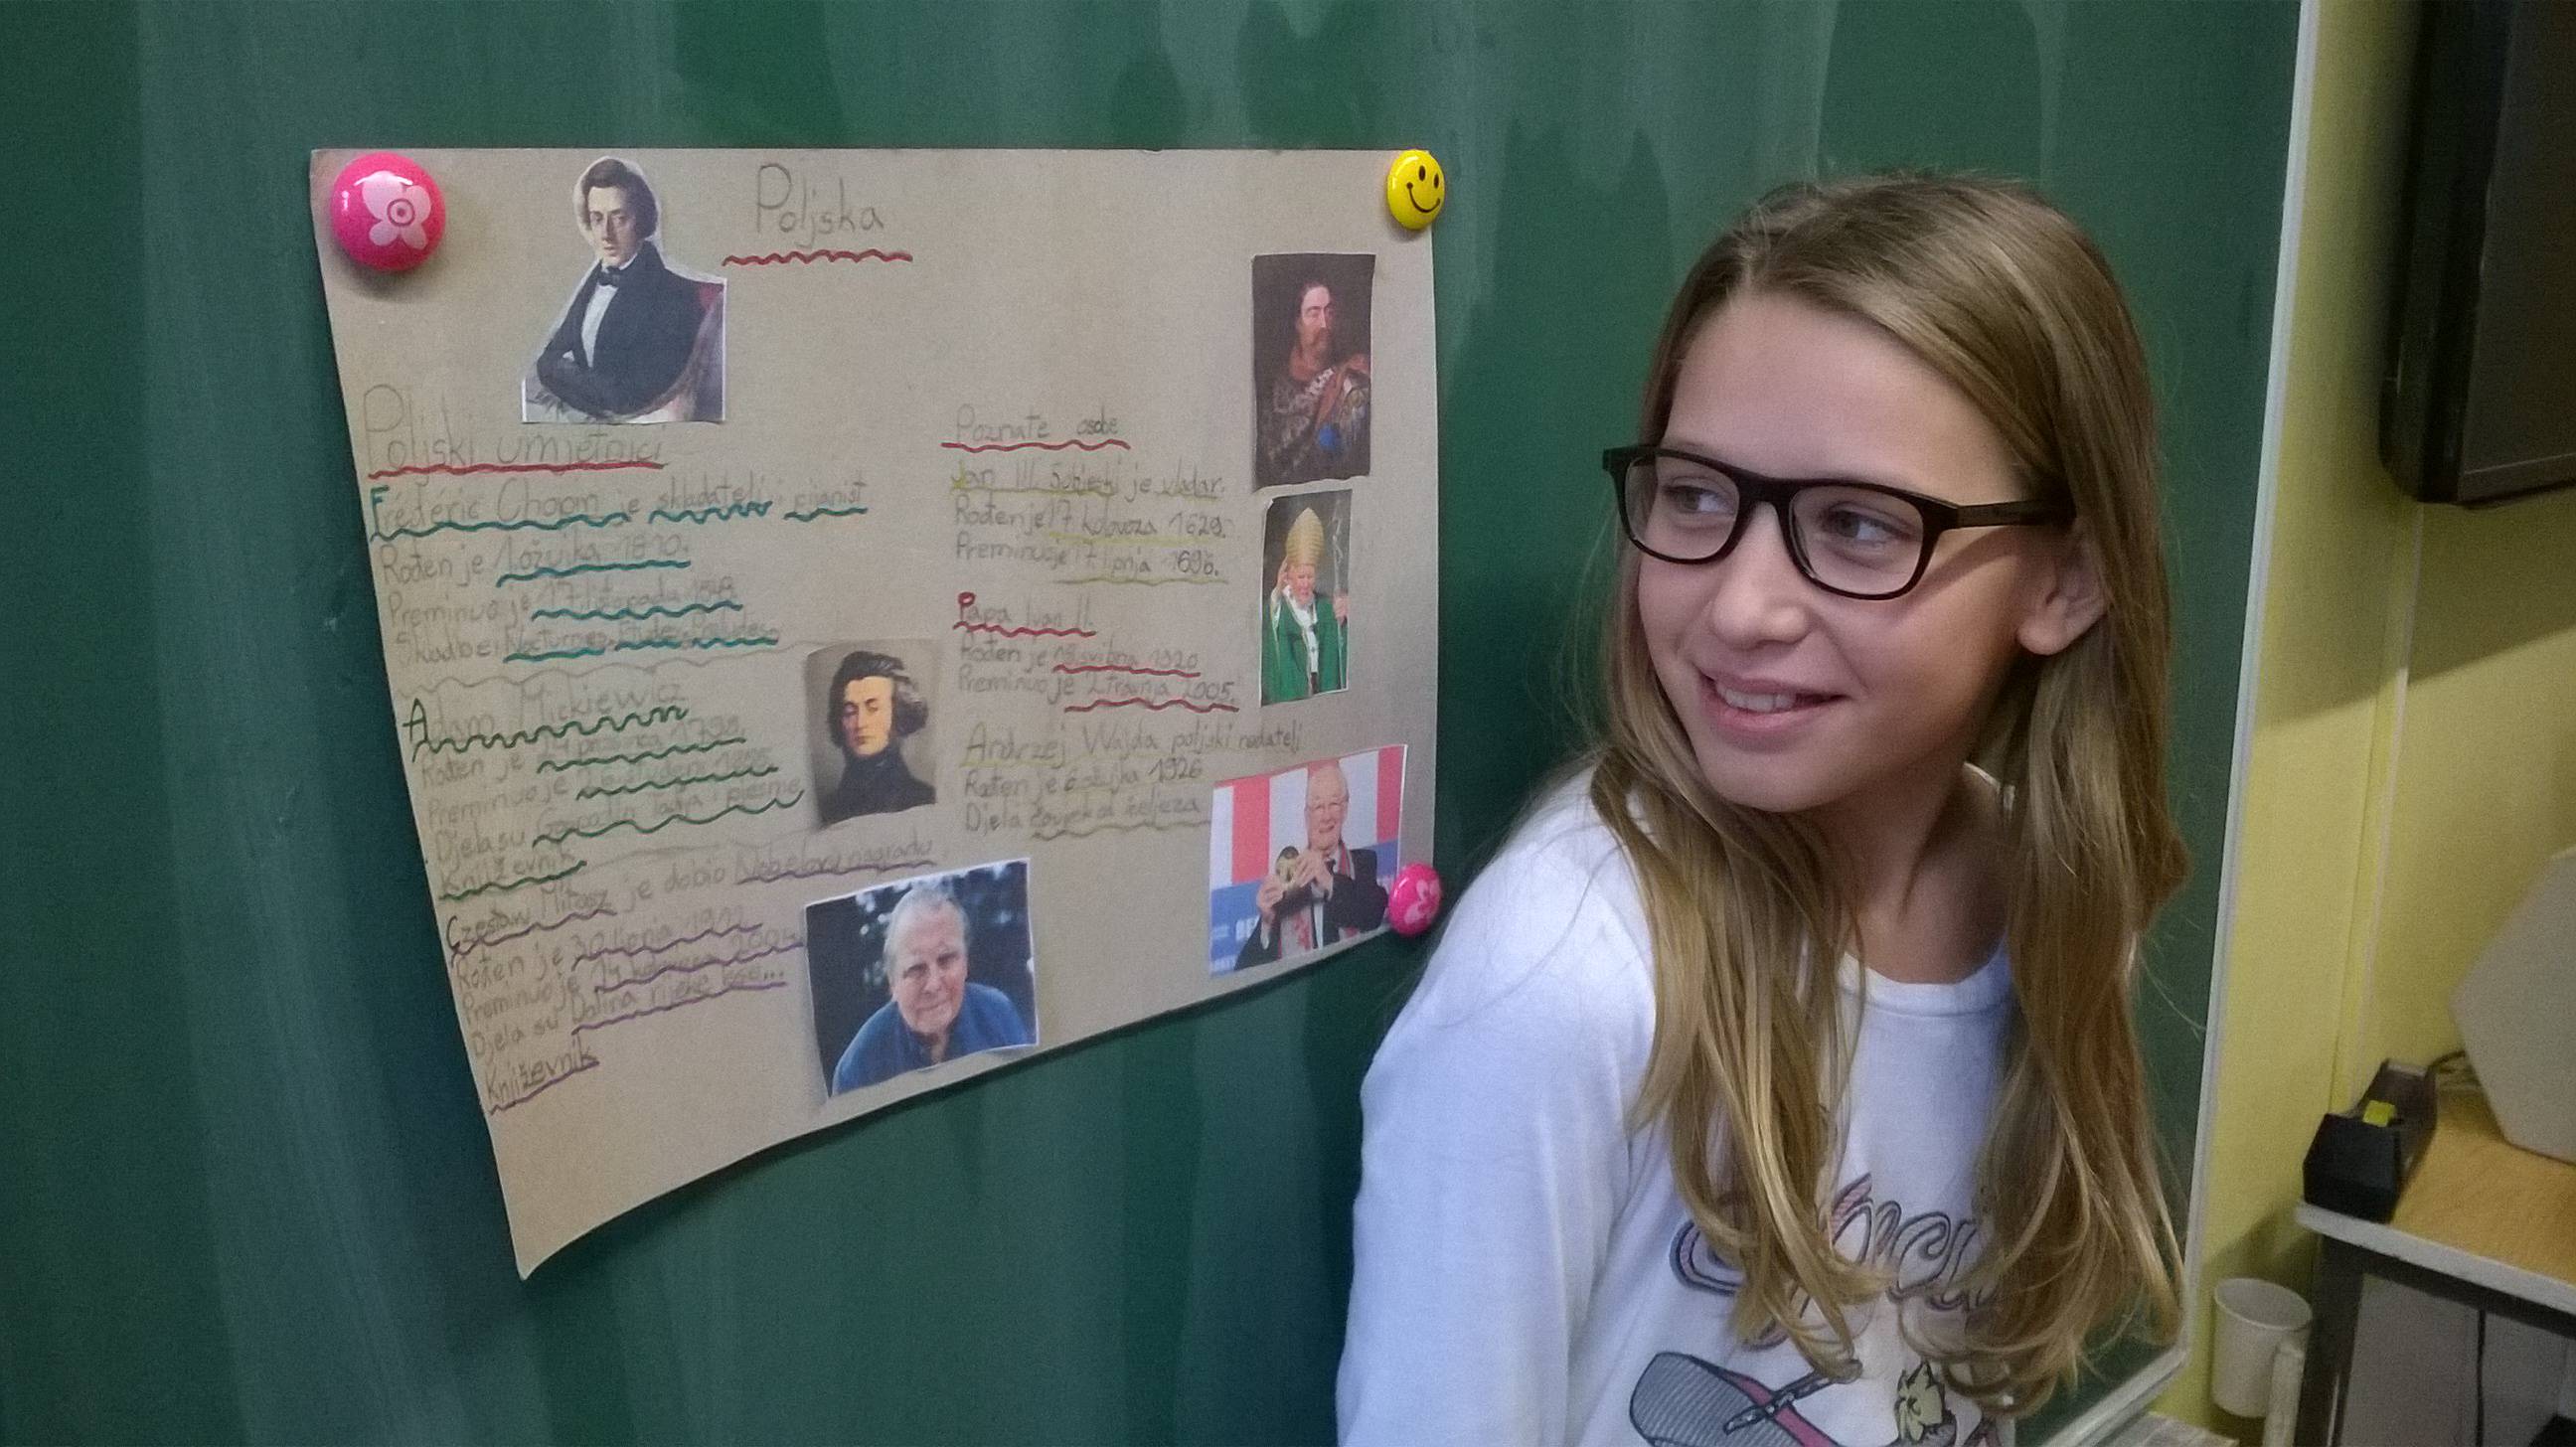 Poljska
Poljski umjetnici
Frédéric Chopin je skladatelj i pijanist
Rođen je 1. ožujka 1810.
Preminuo je 17 listopada
Skladbe: Nocturnes, Etude, Preludes
Adam Mickiewicz
Rođen je 24 prosinca 1798.
Preminuo je
Djela su Gospođin lađa i pjesme
Književnik
Czesław Miłosz je dobio Nobelovu nagradu
Rođen je 30 lipnja 1911.
Preminuo je 14 kolovoza 2004.
Djela su Dolina rijeke Isse...
Književnik
Poznate osobe
Jan III. Sobieski je vladar.
Rođen je 17 kolovoza 1629.
Preminuo je 17 lipnja 1696.
Papa Ivan II.
Rođen je 18 svibnja 1920
Preminuo je 2 travnja 2005.
Andrzej Wajda poljski redatelj
Rođen je 6 ožujka 1926
Djela Čovjek od željeza